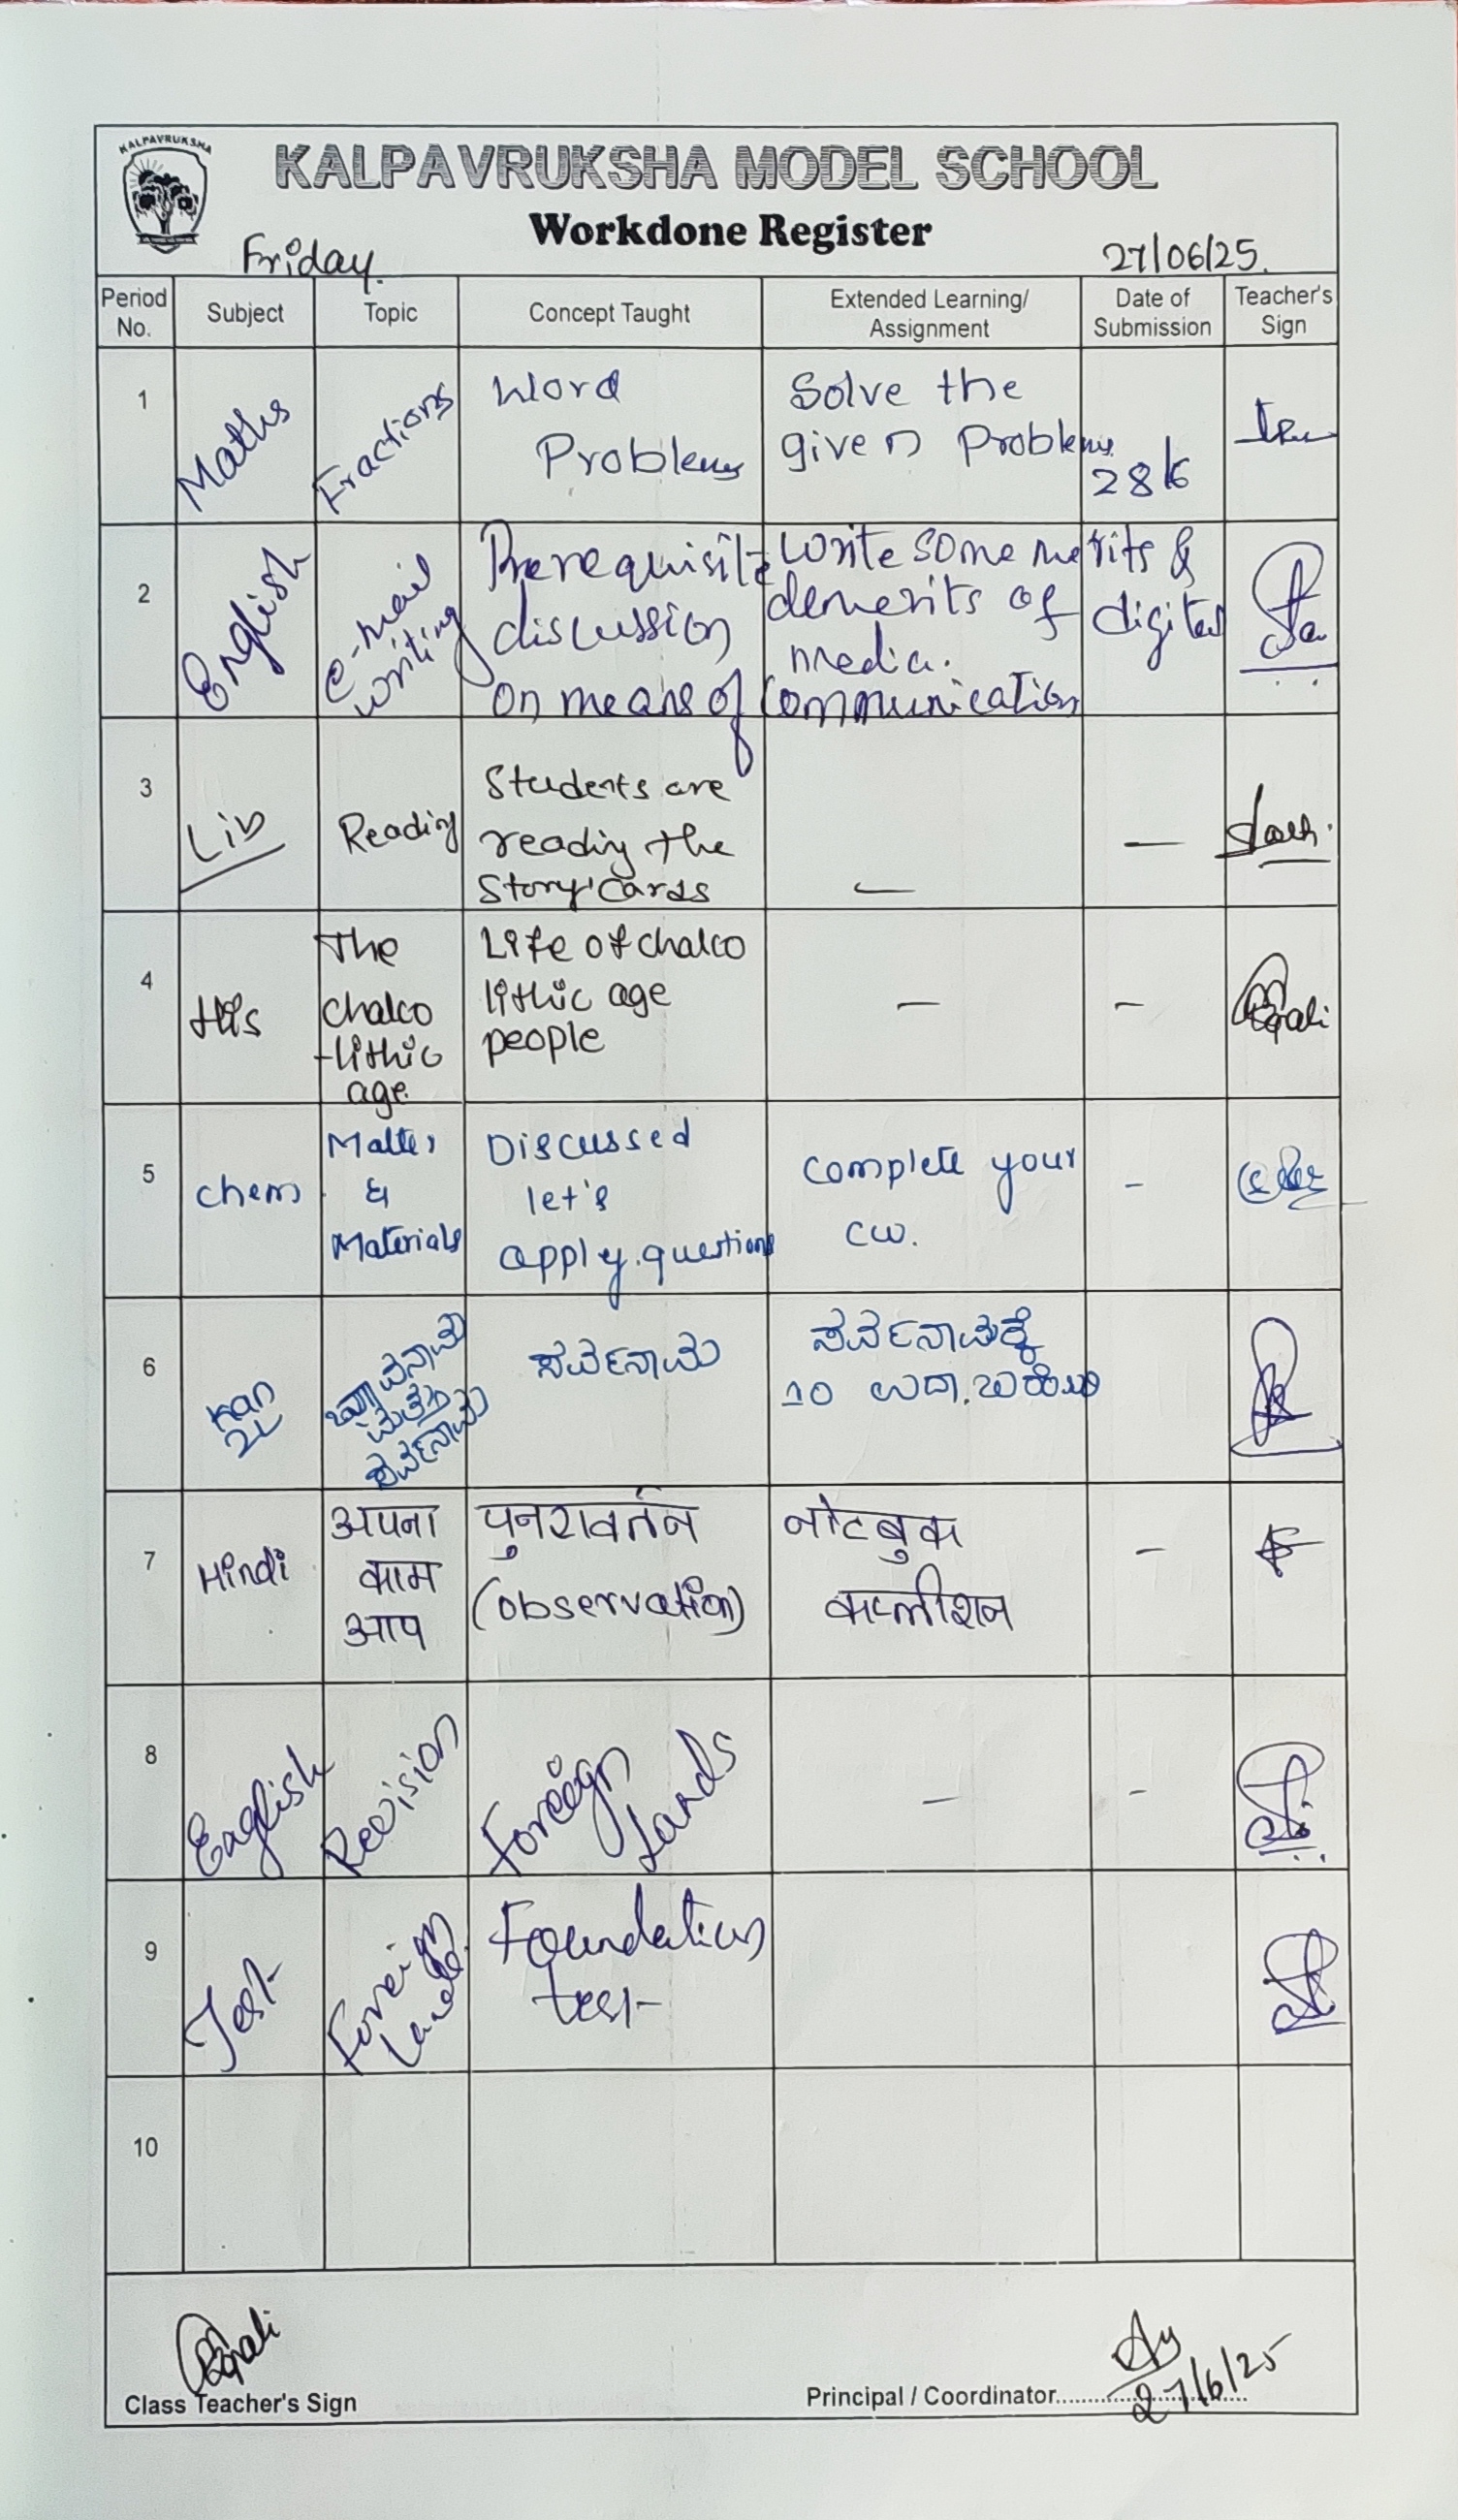 KALPAVRUKSHA
KALPAVRUKSHA MODEL SCHOOL
Workdone Register
Friday. 27/06/25.
Period No. Subject Topic Concept Taught Extended Learning/ Assignment Date of Submission Teacher's Sign
1 Maths Fractions Word Problems Solve the given Problems. 28/6
2 English e-mail writing Prerequisite discussion on means of communication write some merits & demerits of digital media.
3 Lib Reading Students are reading the Story Cards — —
4 His The chalco -lithic age Life of chalco lithic age people — —
5 chem Matter & Materials Discussed let's apply questions complete your cw. -
6 Kan 2L ನಾಮ ಮತ್ತು ಸರ್ವನಾಮ ಸರ್ವನಾಮ ಸರ್ವನಾಮಕ್ಕೆ 10 ಉದಾ.
7 Hindi अपना काम आप पुनरावर्तन (observation) नोटबुक कम्प्लीशन —
8 English Revision Foreign Lands — -
9 Test Foreign Lands Foundation test
10
Class Teacher's Sign
Principal / Coordinator............ 27/6/25